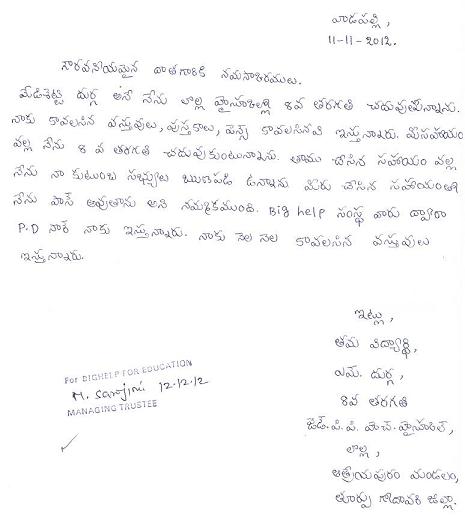 వాడపల్లి,
11-11-2012.
గౌరవనీయమైన దాతగారికి నమస్కారములు.
మేడిశెట్టి దుర్గ అనే నేను లొల్ల హైస్కూల్లో 8వ తరగతి చదువుతున్నాను.
నాకు కావలసిన వస్తువులు, పుస్తకాలు, పెన్స్ కావలసినవి ఇస్తున్నారు. మీ సహాయం
వల్ల నేను 8 వ తరగతి చదువుకుంటున్నాను. తాము చేసిన సహాయం వల్ల
నేను నా కుటుంబ సభ్యులు ఋణపడి ఉన్నాము మీరు చేసిన సహాయంతో
నేను పాస్ అవుతాను అని నమ్మకముంది. Big help సంస్థ వారు ద్వారా
P.D సార్ నాకు ఇస్తున్నారు. నాకు నెల నెల కావలసిన వస్తువులు
ఇస్తున్నారు.
ఇట్లు,
తమ విద్యార్థి,
ఎమ్. దుర్గ,
8వ తరగతి
జెడ్.పి.పి. హెచ్. హైస్కూల్,
లొల్ల,
ఆత్రేయపురం మండలం,
తూర్పు గోదావరి జిల్లా.
For BIGHELP FOR EDUCATION
M. Sarojini 12.12.12
MANAGING TRUSTEE